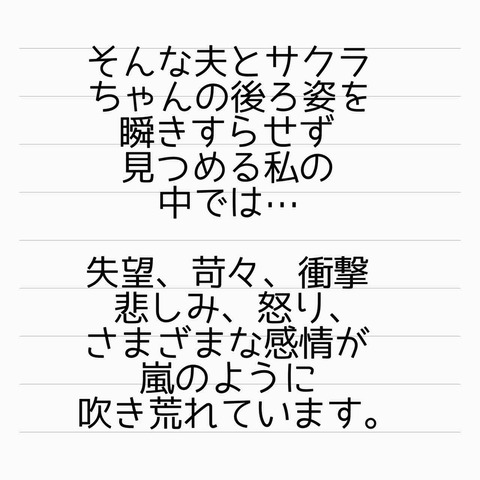 そんな夫とサクラ
ちゃんの後ろ姿を
瞬きすらせず
見つめる私の
中では…
失望、苛々、衝撃
悲しみ、怒り、
さまざまな感情が
嵐のように
吹き荒れています。